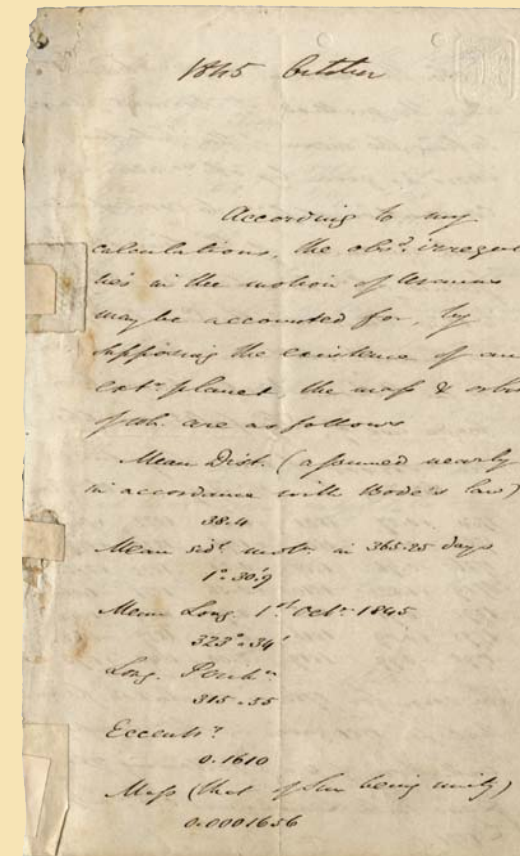 1845 October
According to my
calculations, the obsd. irregulari
ties in the motion of Uranus
may be accounted for, by
supposing the existence of an
extr. planet, the mass & orbit
of wh. are as follows
Mean Dist. (assumed nearly
in accordance with Bode's law)
38.4
Mean sidl. motn. in 365.25 days
1°.30'.9
Mean Long. 1st Octr. 1845
323°.34'
Long. Perihn.
315.55
Eccenty.
0.1610
Mass (that of Sun being unity)
0.0001656